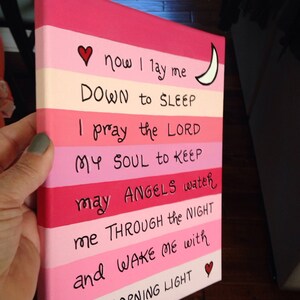 now I lay me
DOWN to SLEEP
I pray the LORD
MY SOUL to KEEP
may ANGELS watch
me THROUGH the NIGHT
and WAKE ME with
MORNING LIGHT